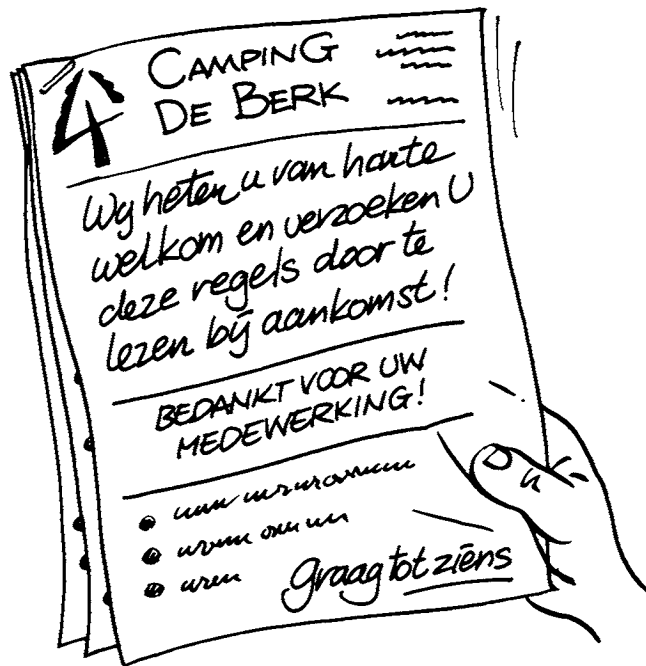 CAMPING
DE BERK
Wij heten u van harte
welkom en verzoeken U
deze regels door te
lezen bij aankomst!
BEDANKT VOOR UW
MEDEWERKING!
graag tot ziens